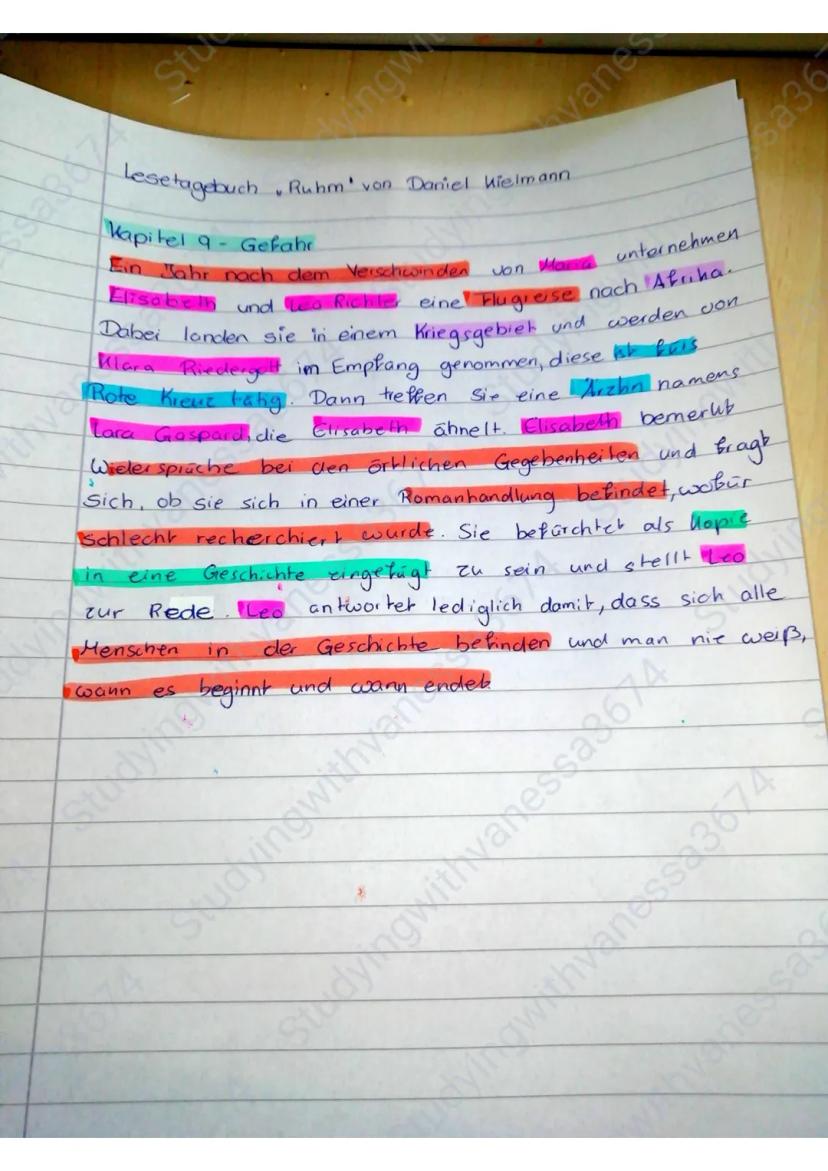 Lesetagebuch „Ruhm" von Daniel Kielmann
Kapitel 9 - Gefahr
Ein Jahr nach dem Verschwinden von Maria unternehmen
Elisabeth und Leo Richter eine Flugreise nach Afrika.
Dabei landen sie in einem Kriegsgebiet und werden von
Klara Riedergott im Empfang genommen, diese ist fürs
Rote Kreuz tätig. Dann treffen sie eine Ärztin namens
Lara Gaspard, die Elisabeth ähnelt. Elisabeth bemerkt
Widersprüche bei den örtlichen Gegebenheiten und fragt
sich, ob sie sich in einer Romanhandlung befindet, wofür
schlecht recherchiert wurde. Sie befürchtet als Kopie
in eine Geschichte eingefügt zu sein und stellt Leo
zur Rede. Leo antwortet lediglich damit, dass sich alle
Menschen in der Geschichte befinden und man nie weiß,
wann es beginnt und wann endet.
Studyingwithvanessa3674